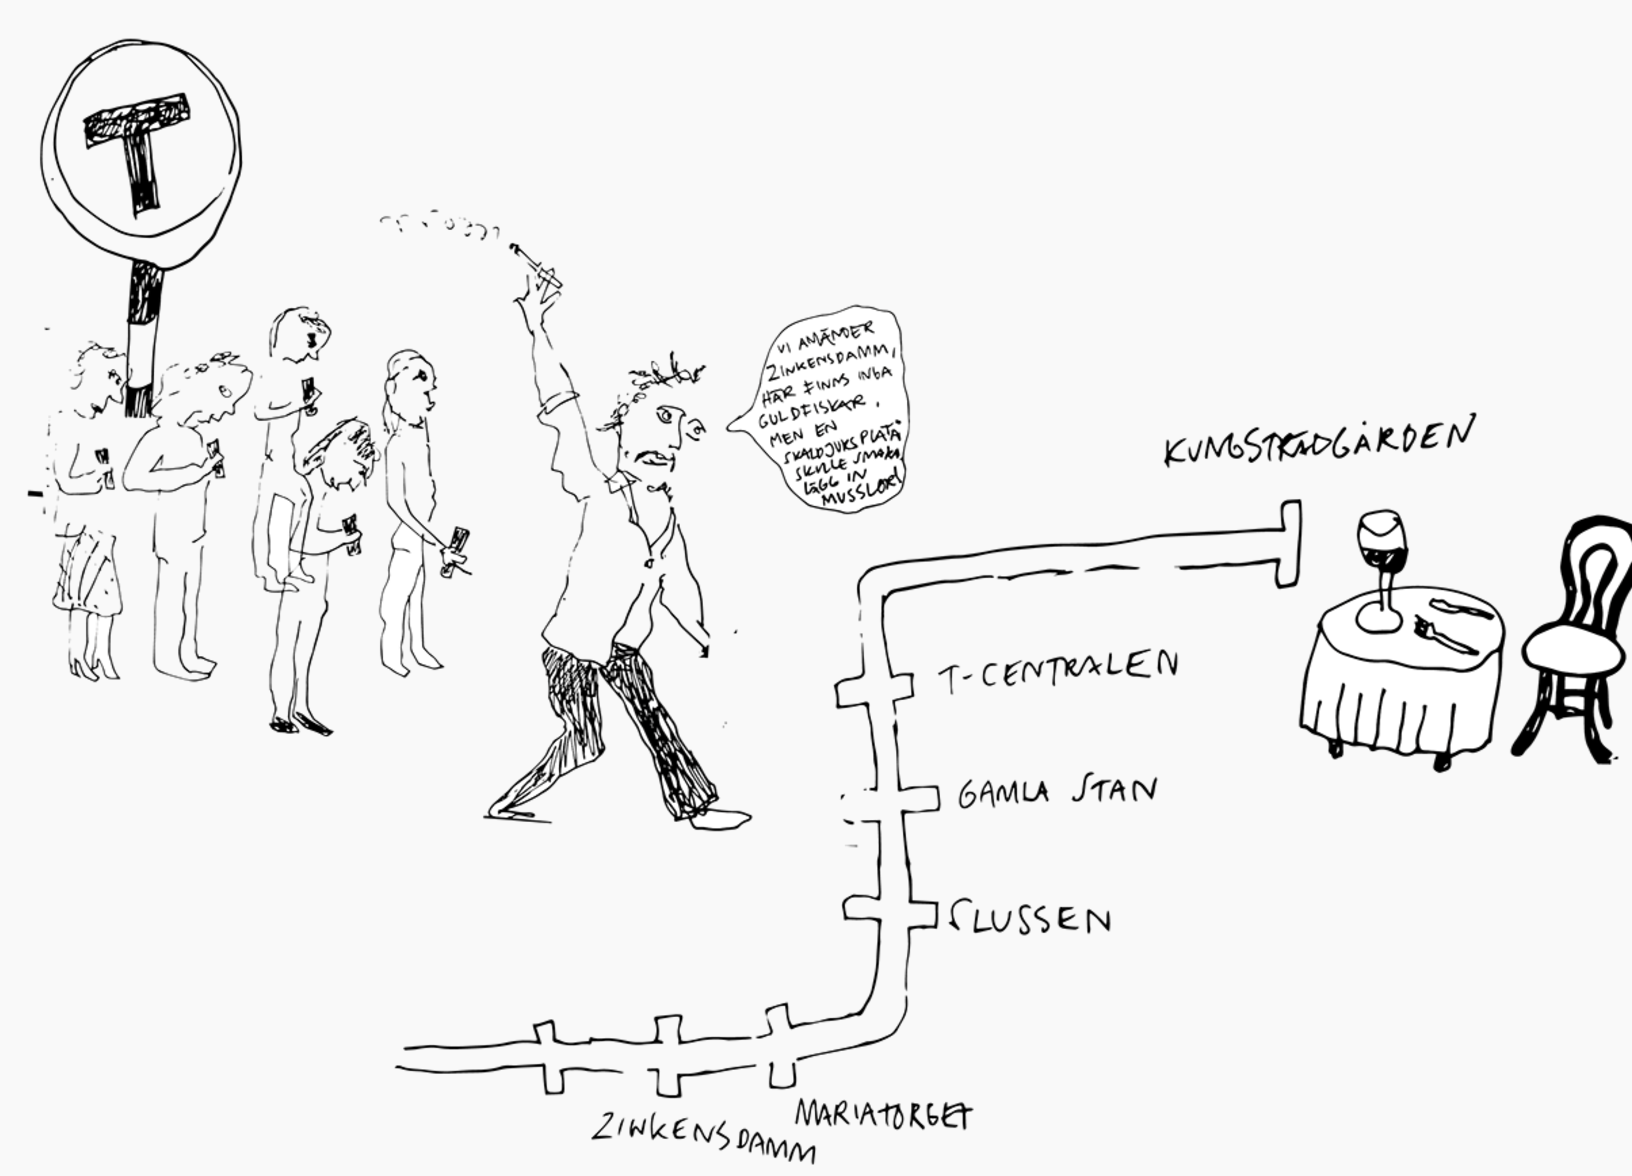 T
VI AMÄNDER
ZINKENSDAMM,
HÄR FINNS INGA
GULDFISKAR.
MEN EN
SKALDJUKSPLATÅ
SKULLE SMAKA
LÄGG IN
MUSSLOR!
KUNGSTRÄDGÅRDEN
T-CENTRALEN
GAMLA STAN
SLUSSEN
MARIATORGET
ZINKENSDAMM